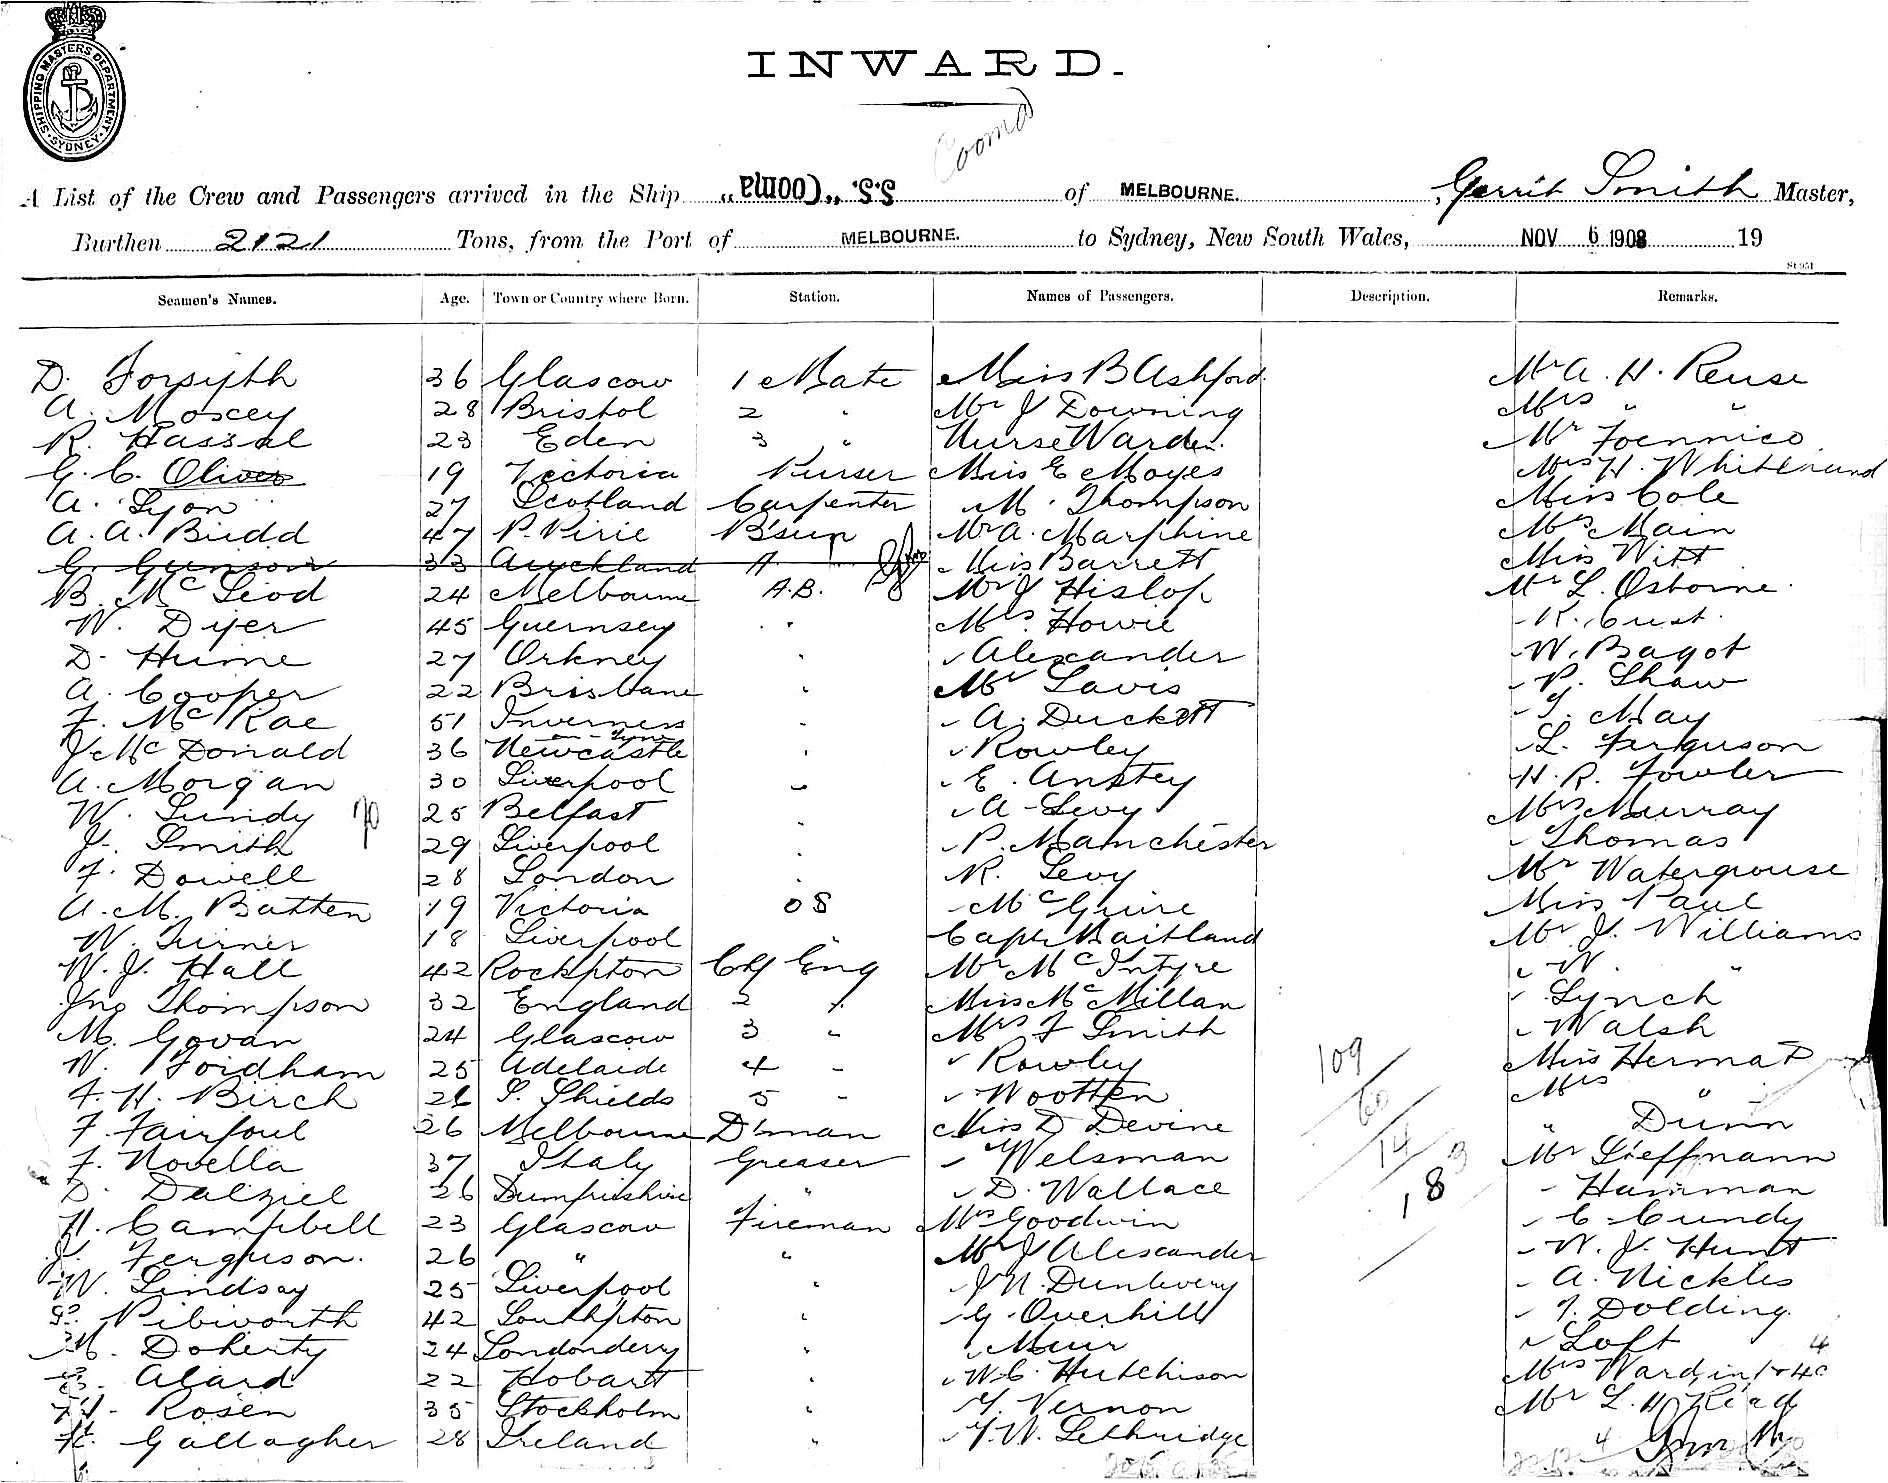 SHIPPING MASTERS DEPARTMENT · SYDNEY ·
INWARD.
Cooma
A List of the Crew and Passengers arrived in the Ship S.S. "Cooma" of MELBOURNE. Gerrit Smith Master,
Burthen 2121 Tons, from the Port of MELBOURNE. to Sydney, New South Wales, NOV 6 1908 19
Seamen's Names. Age. Town or Country where Born. Station. Names of Passengers. Description. Remarks.
D. Forsyth 36 Glascow 1 Mate Miss B Ashford Mr A. H. Reuse
A. Moscey 28 Bristol 2 " Mr J Downing Mrs " "
R. Hassal 23 Eden 3 " Nurse Warden. Mr Foennico
G. C. Oliver 19 Victoria Purser Miss E Moyes Mrs H. Whitbrund
A. Lyon 27 Scotland Carpenter M. Thompson Miss Cole
A. A. Budd 47 P. Pirie B'sun Mr A. Marphine Mrs Main
G. Gunson 33 Auckland A Miss Barrett Miss Witt
B. McLeod 24 Melbourne A.B. Mr J Hislop Mr L. Osborne
W. Dyer 45 Guernsey " Mrs Howie " K. Cust.
D. Hume 27 Orkney " " Alexander " W. Bagot
A. Cooper 22 Brisbane " Mr Lavis " P. Shaw
F. McRae 51 Inverness " " A. Duckett " J. May
J McDonald 36 Newcastle on-Tyne " " Rowley " L. Ferguson
A. Morgan 30 Liverpool " " E. Anstey " H. R. Fowler
W. Lundy 25 Belfast " " A Levy Mrs Murray
J. Smith 29 Liverpool " " P. Manchester " Thomas
F. Dowell 28 London " " R. Levy Mr Watergrouse
A. M. Batten 19 Victoria OS " McGuire Miss Paul
W. Turner 18 Liverpool " Capt Maitland Mr J. Williams
W. J. Hall 42 Rockpton Chf Eng Mr McIntyre " W. "
Jno Thompson 32 England 2 " Miss McMillan " Lynch
M. Govan 24 Glascow 3 " Mrs F Smith " Walsh
W. Fordham 25 Adelaide 4 " " Rowley 109 Miss Hermat
F. H. Birch 26 S. Shields 5 " " Wootten 60 Mrs "
F. Fairfoul 26 Melbourne D'man Miss D Devine 14 " Dunn
F. Novella 37 Italy Greaser " Welsman 183 Mr Lieffmann
D. Dalziel 26 Dumfrishire " " D. Wallace " Hamman
H. Campbell 23 Glascow Fireman Mrs Goodwin " C. Cundy
J. Ferguson. 26 " " Mr J Alexander " W. J. Hunt
W. Lindsay 25 Liverpool " " J N. Dunlevery " A. Nickles
Pibworth 42 Southpton " " G. Overhill " J. Dolding.
M. Doherty 24 Londonderry " " Muir " Loft 4
Alard 22 Hobart " " W. C. Hutchison Mrs Ward, inf & 4c
Rosen 35 Stockholm " " J. Vernon Mr L. H. Read
Gallagher 28 Ireland " " J. W. Lethridge 4 G Smith